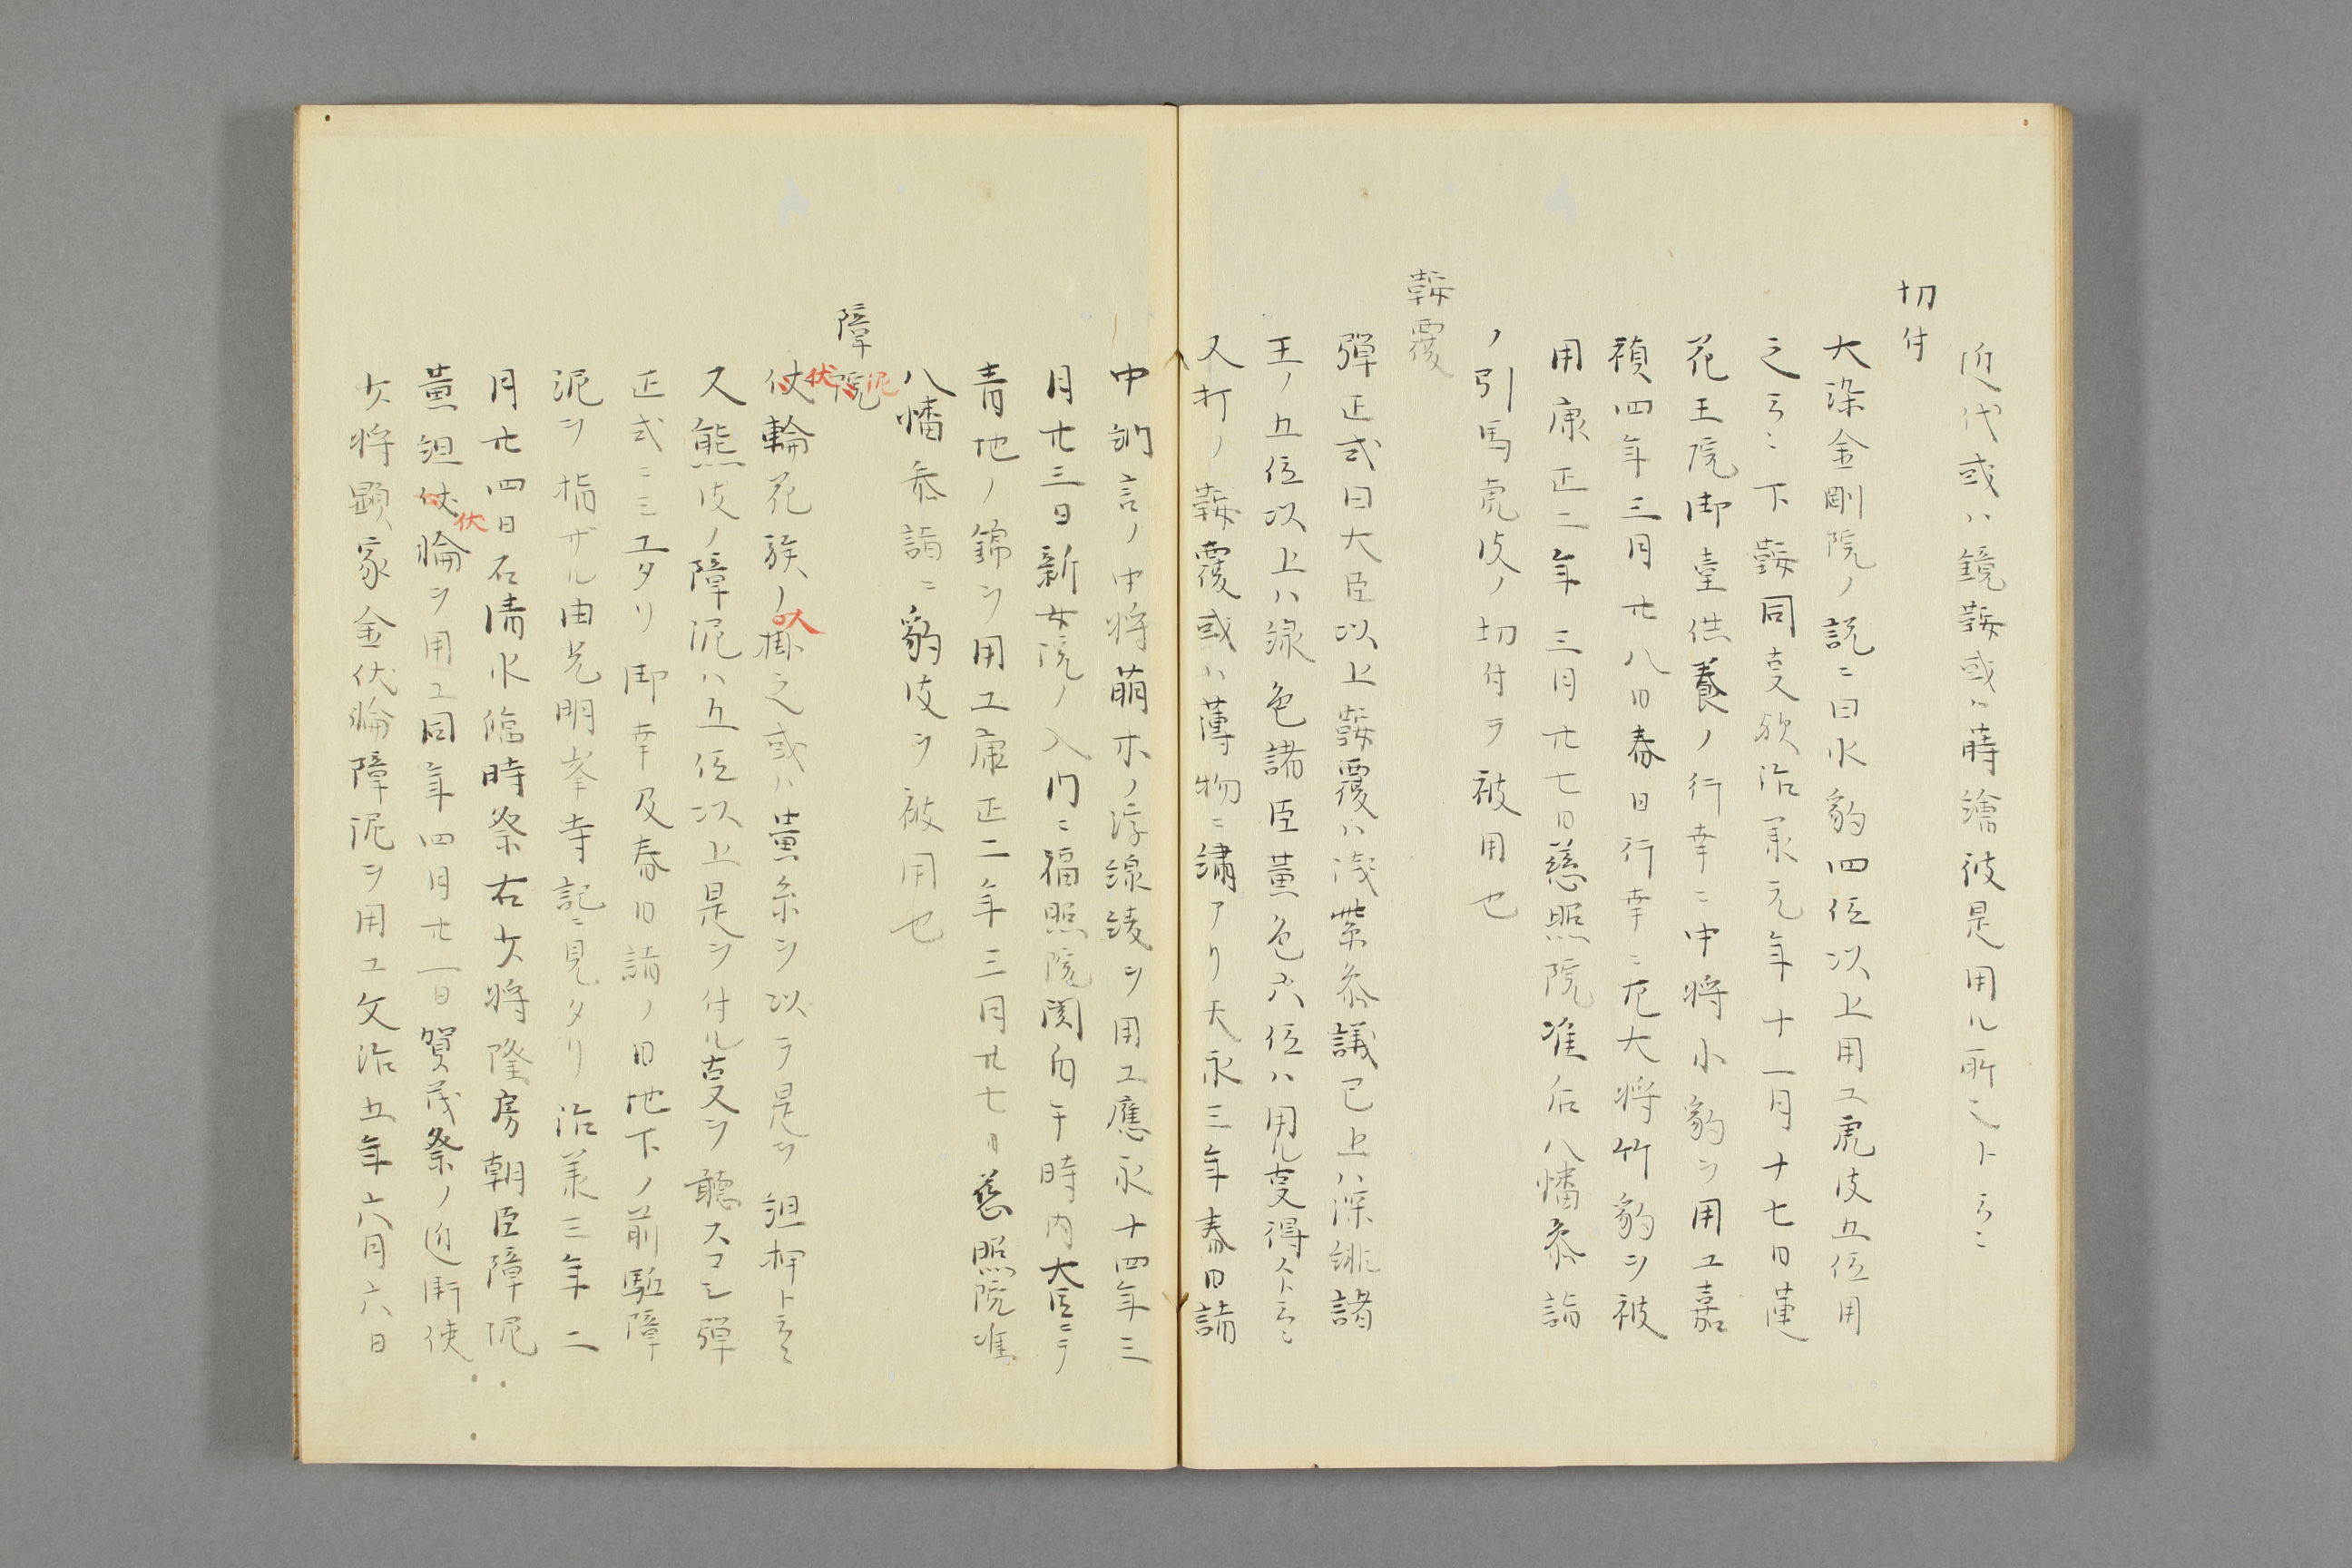 近代或ハ鏡鞍或ハ蒔澮彼是用ル所之ト云ニ
切付
大染金剛院ノ説ニ曰水豹四位以上用ユ虎皮五位用
之云ニ下鞍同支欤治承元年十一月十七日蓮
花王院御臺供養ノ行幸ニ中将小豹ヲ用ユ嘉
禎四年三月廿八日春日行幸ニ左大将竹豹ヲ被
用康正二年三月廿七日慈照院准后八幡参詣
ノ引馬虎皮ノ切付ヲ被用也
鞍覆
弾正式曰大臣以上鞍覆ハ浅紫参議已上ハ深緋諸
王ノ五位以上ハ緑色諸臣黄色六位ハ用ル支得スト云ニ
又打ノ鞍覆或ハ薄物ニ繍アリ大永三年春日詣
中納言ノ中将萌木ノ浮線綾ヲ用ユ應永十四年三
月廿三日新女院ノ入内ニ福照院関白于時内大臣ニテ
青地ノ錦ヲ用ユ康正二年三月廿七日慈照院准
八幡参詣ニ豹皮ヲ被用也
障院泥
仗伏輪花族ノ人掛之或ハ黄糸ヲ以テ是ヲ組押ト云
又熊皮ノ障泥ハ五位以上是ヲ付ル支ヲ聴スコミ弾
正式ニミエタリ御幸及春日詣ノ日地下ノ前駈障
泥ヲ指ザル由光明峯寺記ニ見タリ治承三年二
月廿四日石清水臨時祭右少将隆房朝臣障泥
黄組仗伏輪ヲ用ユ同年四月廿一日賀茂祭ノ近衛使
少将顕家金伏輪障泥ヲ用ユ文治五年六月六日